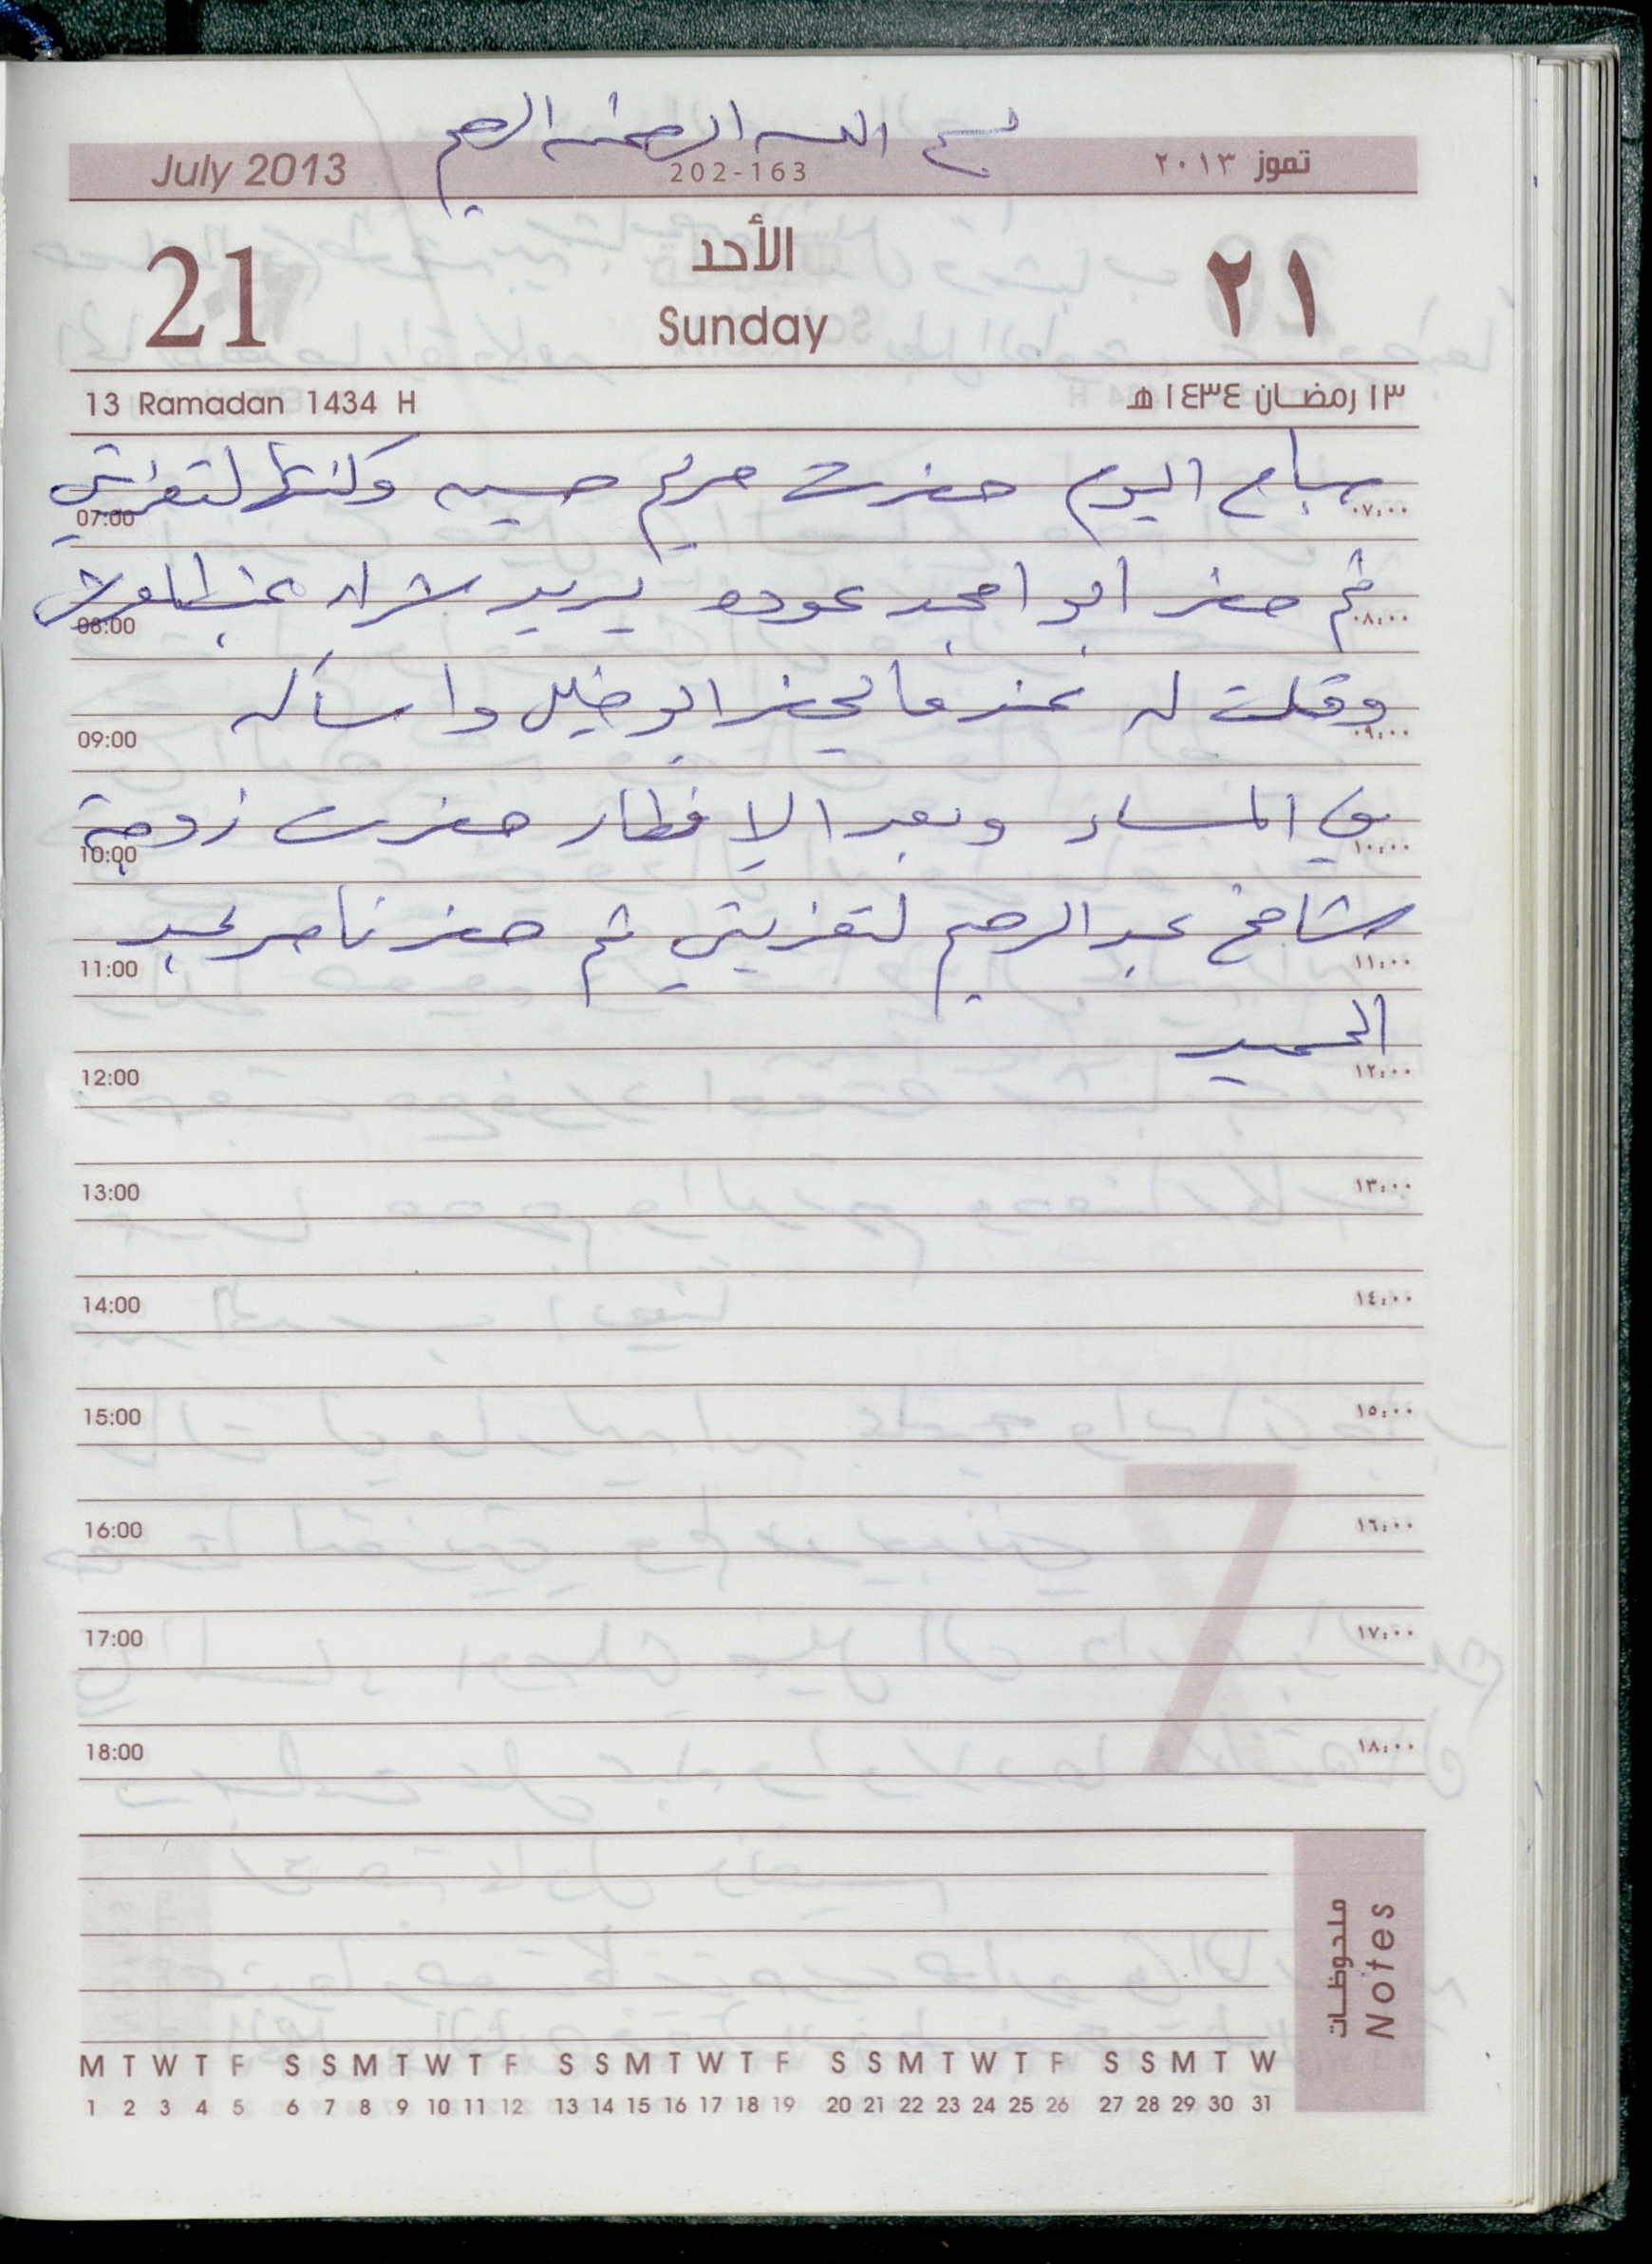 بسم الله الرحمن الرحيم
July 2013 202-163 تموز ٢٠١٣
21 الأحد ٢١
Sunday
13 Ramadan 1434 H ١٣ رمضان ١٤٣٤ هـ
صباح اليوم حضرت مريم حسين وكنتها لتعزيتي
07:00 ٠٧:٠٠
ثم حضر ابو امجد عوده يريد شراء
08:00 ٠٨:٠٠
وقلت له عندما يحضر ابو خليل واسأله
09:00 ٠٩:٠٠
في المساء وبعد الافطار حضرت زوجة
10:00 ١٠:٠٠
شامخ عبد الرحيم لتعزيتي ثم حضر ناصر عبد
11:00 ١١:٠٠
الحميد
12:00 ١٢:٠٠
13:00 ١٣:٠٠
14:00 ١٤:٠٠
15:00 ١٥:٠٠
16:00 ١٦:٠٠
17:00 ١٧:٠٠
18:00 ١٨:٠٠
7
ملحوظات
Notes
M T W T F S S M T W T F S S M T W T F S S M T W T F S S M T W
1 2 3 4 5 6 7 8 9 10 11 12 13 14 15 16 17 18 19 20 21 22 23 24 25 26 27 28 29 30 31